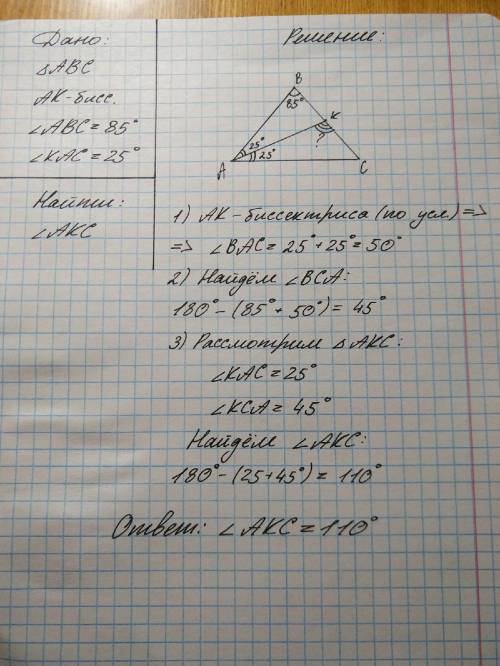 Дано:
△ABC
AK-бисс.
∠ABC = 85°
∠KAC = 25°
Найти:
∠AKC
Решение:
B
85°
K
?
25°
25°
A
C
1) AK - биссектриса (по усл) =>
=> ∠BAC = 25° + 25° = 50°
2) Найдём ∠BCA:
180° - (85° + 50°) = 45°
3) Рассмотрим △AKC:
∠KAC = 25°
∠KCA = 45°
Найдём ∠AKC:
180° - (25 + 45°) = 110°
Ответ: ∠AKC = 110°